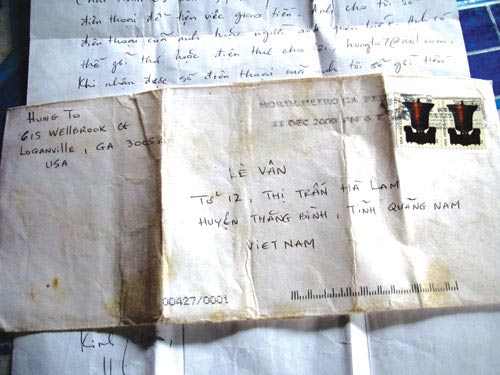 điện thoại để tiện việc giao tiền. Anh cho tôi số
điện thoại của anh hoặc người anh
thể gởi thư hoặc điện thư cho tôi.
Khi nhận được số điện thoại của anh tôi sẽ gởi tiền
HUNG TO
615 WELLBROOK Ct
LOGANVILLE, GA
USA
NORTH METRO GA
11 DEC 2006 PM 6 T
LÊ VÂN
TỔ 12, THỊ TRẤN HÀ LAM
HUYỆN THĂNG BÌNH, TỈNH QUẢNG NAM
VIET NAM
00427/0001